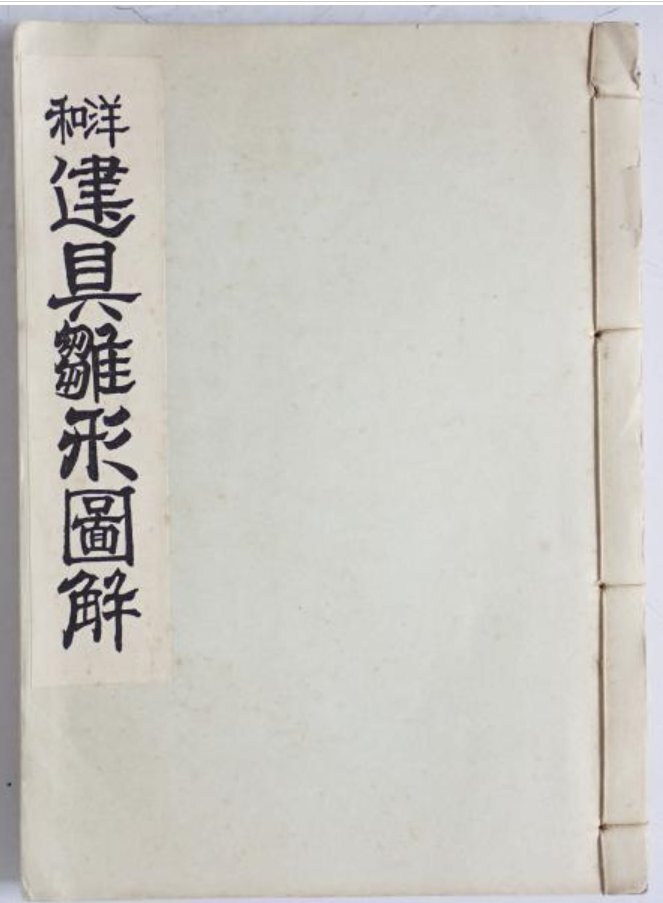 洋和建具雛形圖解